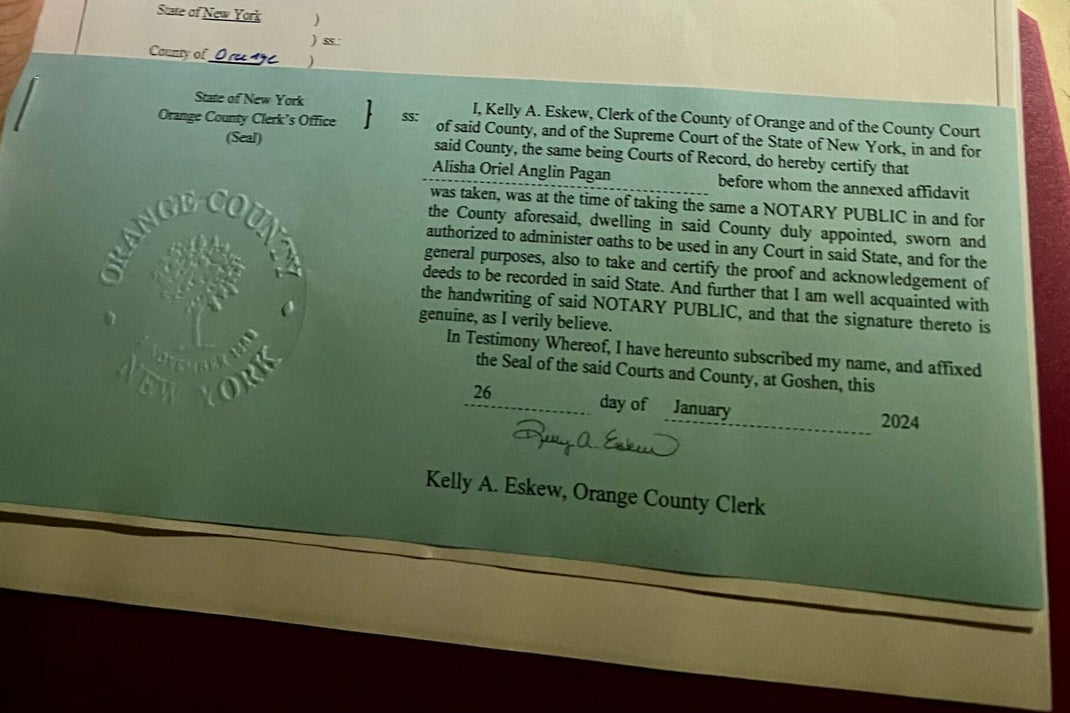 State of New York )
) ss.:
County of Orange )
State of New York
Orange County Clerk's Office
(Seal)
} ss:
ORANGE COUNTY
NEW YORK
I, Kelly A. Eskew, Clerk of the County of Orange and of the County Court
of said County, and of the Supreme Court of the State of New York, in and for
said County, the same being Courts of Record, do hereby certify that
Alisha Oriel Anglin Pagan before whom the annexed affidavit
was taken, was at the time of taking the same a NOTARY PUBLIC in and for
the County aforesaid, dwelling in said County duly appointed, sworn and
authorized to administer oaths to be used in any Court in said State, and for the
general purposes, also to take and certify the proof and acknowledgement of
deeds to be recorded in said State. And further that I am well acquainted with
the handwriting of said NOTARY PUBLIC, and that the signature thereto is
genuine, as I verily believe.
In Testimony Whereof, I have hereunto subscribed my name, and affixed
the Seal of the said Courts and County, at Goshen, this
26 day of January 2024
Kelly A. Eskew
Kelly A. Eskew, Orange County Clerk